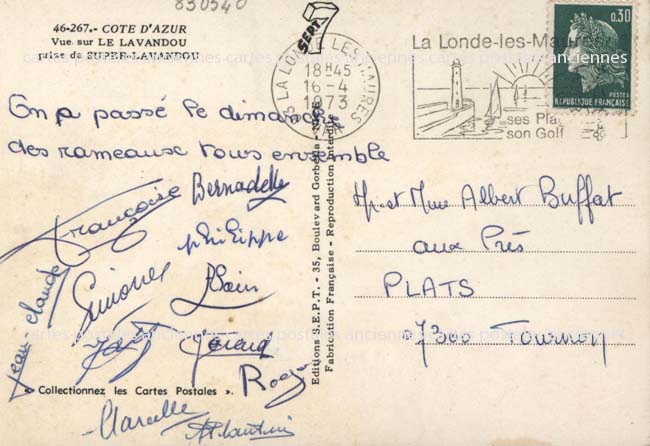 830540
46-267.- COTE D'AZUR
Vue sur LE LAVANDOU
prise de SUPER-LAVANDOU
On a passé le dimanche
des rameaux tous ensemble
Françoise Bernadette
Philippe
Jean-Claude
Simone Alain
Gérard
Roger
« Collectionnez les Cartes Postales ».
Marcelle
Editions S.E.P.T. - 35, Boulevard Gorbella - NICE
Fabrication Française - Reproduction Interdite
SEPT
83 LA LONDE LES MAURES
18H45
16-4
1973
VAR
La Londe-les-Maures
ses Pla
son Golf
0,30
POSTES
REPUBLIQUE FRANÇAISE
Mr et Mme Albert Buffat
aux Prés
PLATS
07300 Tournon
cartes postales anciennes